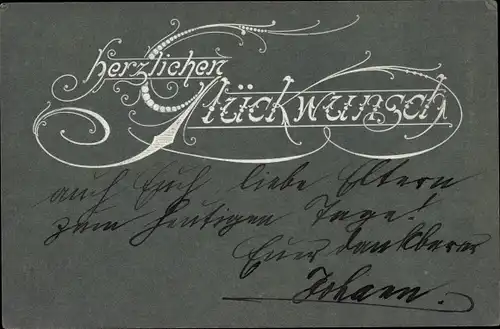 Herzlichen
Glückwunsch
auch Euch liebe Eltern
zum heutigen Tage!
Euer dankbarer
Johann.